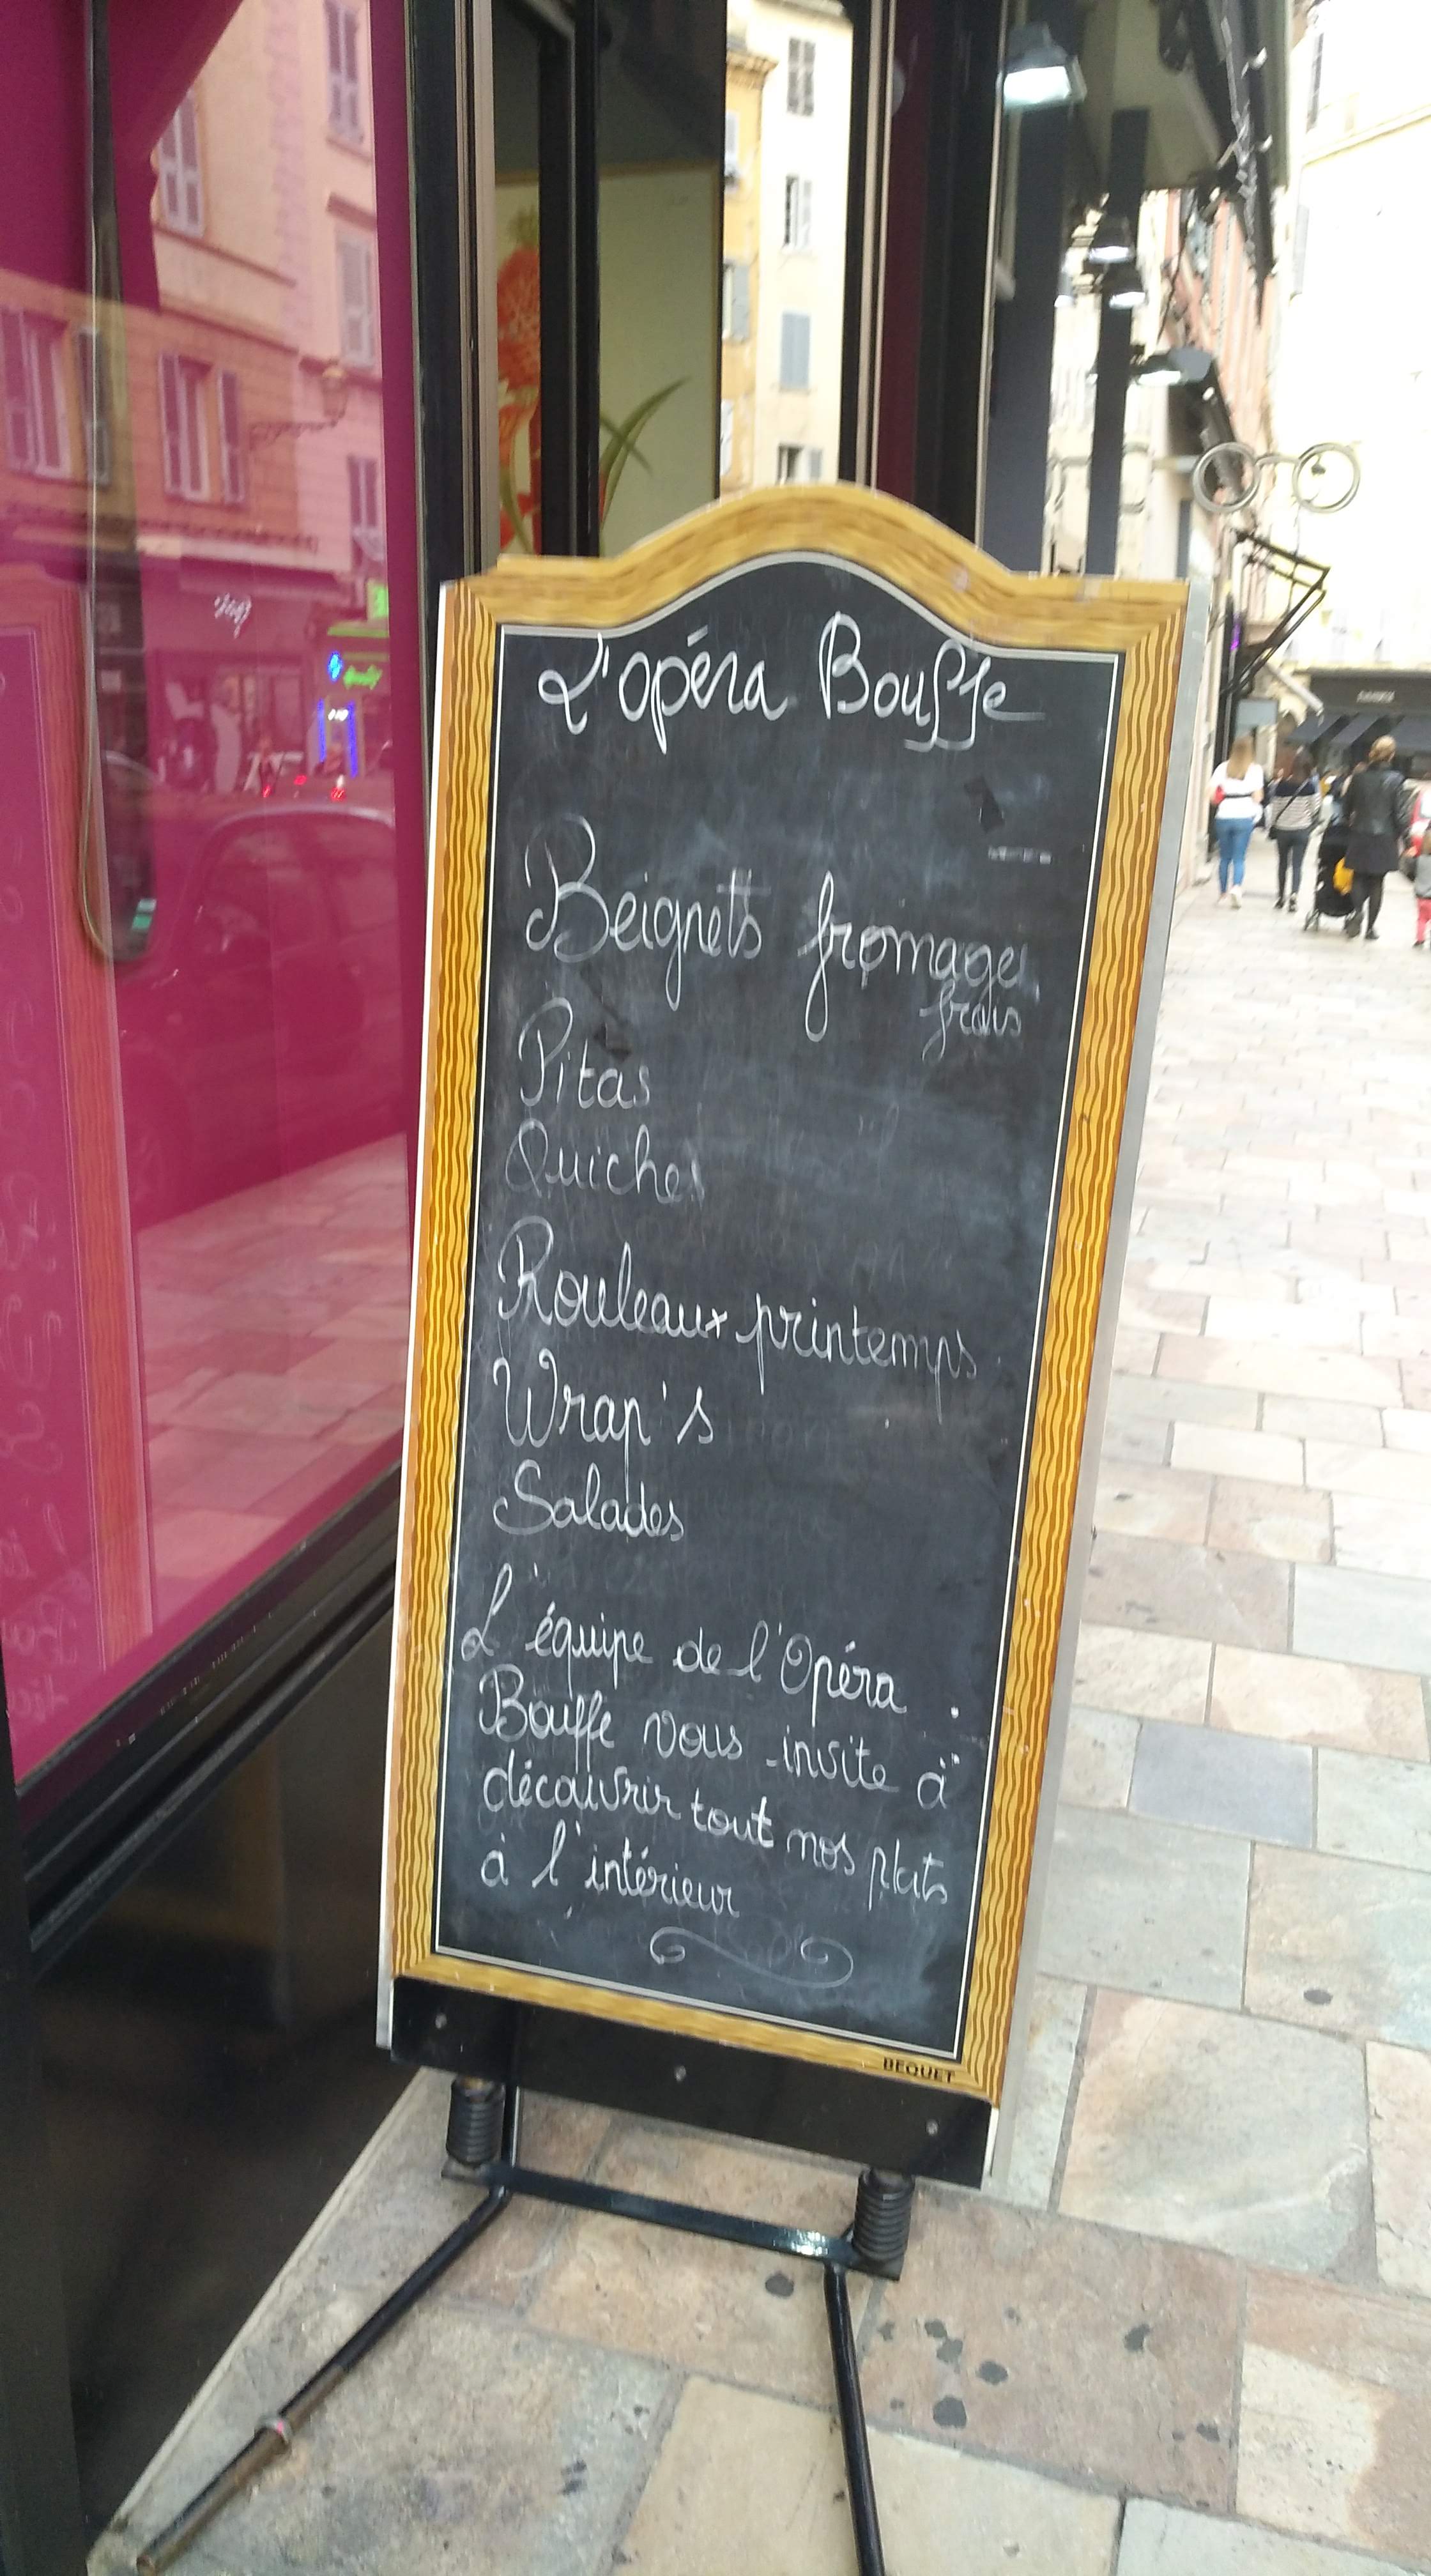 L'opéra Bouffe
Beignets fromage
frais
Pitas
Quiches
Rouleaux printemps
Wrap's
Salades
L'équipe de l'Opéra
Bouffe vous invite à
découvrir tout nos plats
à l'intérieur
BEQUET